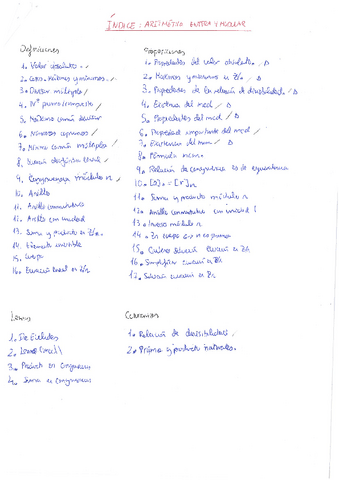 ÍNDICE: ARITMÉTICA ENTERA Y MODULAR
Definiciones
1. Valor absoluto
2. Cotas, máximos y mínimos
3. Divisor múltiplo
4. Nº primo/compuesto
5. Máximo común divisor
6. Números coprimos
7. Mínimo común múltiplo
8. Ecuación diofántica lineal
9. Congruencia módulo n
10. Anillo
11. Anillo conmutativo
12. Anillo con unidad
13. Suma y producto en Zn
14. Elemento invertible
15. Cuerpo
16. Ecuación lineal en Zn
Proposiciones
1. Propiedades del valor absoluto
2. Máximos y mínimos en Z
3. Propiedades de la relación de divisibilidad
4. Existencia del mcd
5. Propiedades del mcd
6. Propiedad importante del mcd
7. Existencia del mcm
8. Fórmula mcm
9. Relación de congruencia es de equivalencia
10. [a]n = [r]n
11. Suma y producto módulo n
12. Anillo conmutativo con unidad
13. Inverso módulo n
14. Zn cuerpo
15. solución ecuación en Zn
16. Simplificar ecuación en Zn
17. Solución ecuación en Zn
Lemas
1. De Euclides
2. Lema (mcd)
3. Producto en congruencias
4. Suma en congruencias
Corolarios
1. Relación de divisibilidad
2. Primos y producto naturales.